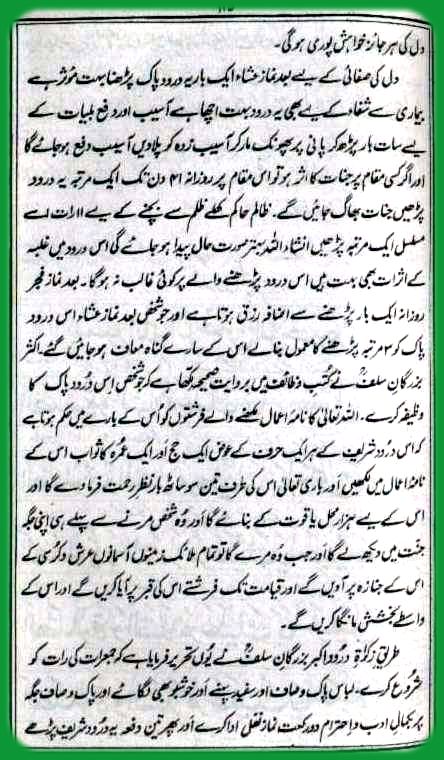 دل کی ہر جائز خواہش پوری ہو گی۔
دل کی صفائی کے لیے بعد نماز عشاء ایک بار یہ درود پاک پڑھنا بہت مؤثر ہے
بیماری سے شفاء کے لیے بھی یہ درود بہت اچھا ہے آسیب اور دفع بلیات کے
لیے سات بار پڑھ کر پانی پر پھونک مار کر آسیب زدہ کو پلا دیں آسیب دفع ہو جائے گا
اور اگر کسی مقام پر جنات کا اثر ہو تو اس مقام پر روزانہ ۴۱ دن تک ایک مرتبہ یہ درود
پڑھیں جنات بھاگ جائیں گے۔ ظالم حاکم کے ظلم سے بچنے کے لیے
مسلسل ایک مرتبہ پڑھیں انشاء اللہ بہتر صورت حال پیدا ہو جائے گی اس درود میں غلبہ
کے اثرات بھی بہت ہیں اس درود پڑھنے والے پر کوئی غالب نہ ہو گا۔ بعد نماز فجر
روزانہ ایک بار پڑھنے سے اضافہ رزق ہوتا ہے اور جو شخص بعد نماز عشاء اس درود
پاک کو ۳ مرتبہ پڑھنے کا معمول بنا لے اس کے سارے گناہ معاف ہو جائیں گے۔ اکثر
بزرگان سلفؒ نے کتب وظائف میں بروایت صحیحہ لکھا ہے کہ جو شخص اس درود پاک کا
وظیفہ کرے۔ اللہ تعالیٰ کا نامۂ اعمال لکھنے والے فرشتوں کو اس کے بارے میں حکم ہوتا ہے
کہ اس درود شریف کے ہر ایک حرف کے عوض ایک حج اور ایک عمرہ کا ثواب اس کے
نامۂ اعمال میں لکھیں اور باری تعالیٰ اس کی طرف تین سو ساٹھ بار نظر رحمت فرما دے گا اور
اس کے لیے ہزار محل یاقوت کے بنائے گا اور وہ شخص مرنے سے پہلے ہی اپنی جگہ
جنت میں دیکھ لے گا اور جب وہ مرے گا تو تمام ملائکہ زمینوں آسمانوں عرش و کرسی کے
اس کے جنازہ پر آویں گے اور قیامت تک فرشتے اس کی قبر پر آیا کریں گے اور اس کے
واسطے بخشش مانگا کریں گے۔
طریق زکوٰۃ درود اکبر بزرگان سلفؒ نے یوں تحریر فرمایا ہے کہ جمعرات کی رات کو
شروع کرے۔ لباس پاک و صاف اور سفید پہنے اور خوشبو بھی لگائے اور پاک و صاف جگہ
پر بکمال ادب و احترام دو رکعت نماز نفل ادا کرے اور پھر تین دفعہ یہ درود شریف پڑھے